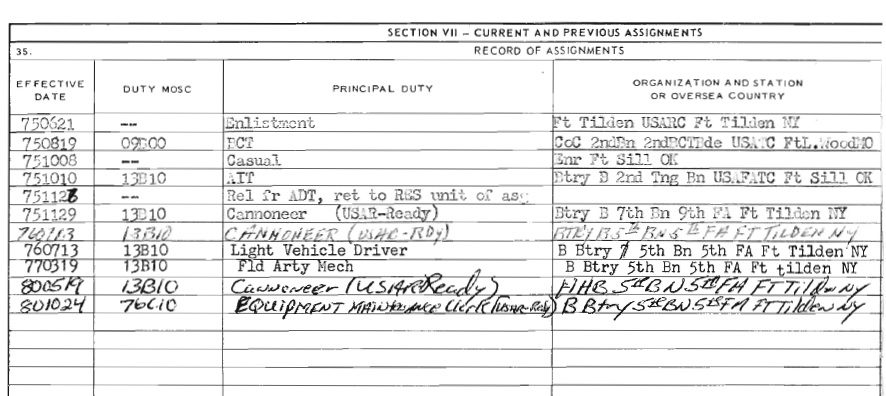 SECTION VII – CURRENT AND PREVIOUS ASSIGNMENTS
35. RECORD OF ASSIGNMENTS
EFFECTIVE DATE DUTY MOSC PRINCIPAL DUTY ORGANIZATION AND STATION OR OVERSEA COUNTRY
750621 -- Enlistment Ft Tilden USARC Ft Tilden NY
750819 09B00 BCT CoC 2ndBn 2ndBCTBde USATC FtL.WoodMO
751008 -- Casual Enr Ft Sill OK
751010 13B10 AIT Btry B 2nd Tng Bn USAFATC Ft Sill OK
751128 -- Rel fr ADT, ret to RES unit of asg
751129 13B10 Cannoneer (USAR-Ready) Btry B 7th Bn 9th FA Ft Tilden NY
13B10 CANNONEER (USAR-RDy) BTRY B 5th BN 5th FA FT TILDEN NY
760713 13B10 Light Vehicle Driver B Btry 5th Bn 5th FA Ft Tilden NY
770319 13B10 Fld Arty Mech B Btry 5th Bn 5th FA Ft tilden NY
800519 13B10 Cannoneer (USAR Ready) HHB 5th BN 5th FA FT Tilden NY
801024 76C10 EQUIPMENT MAINTENANCE Clerk (USAR-Rdy) B Btry 5th BN. 5th FA FT Tilden NY